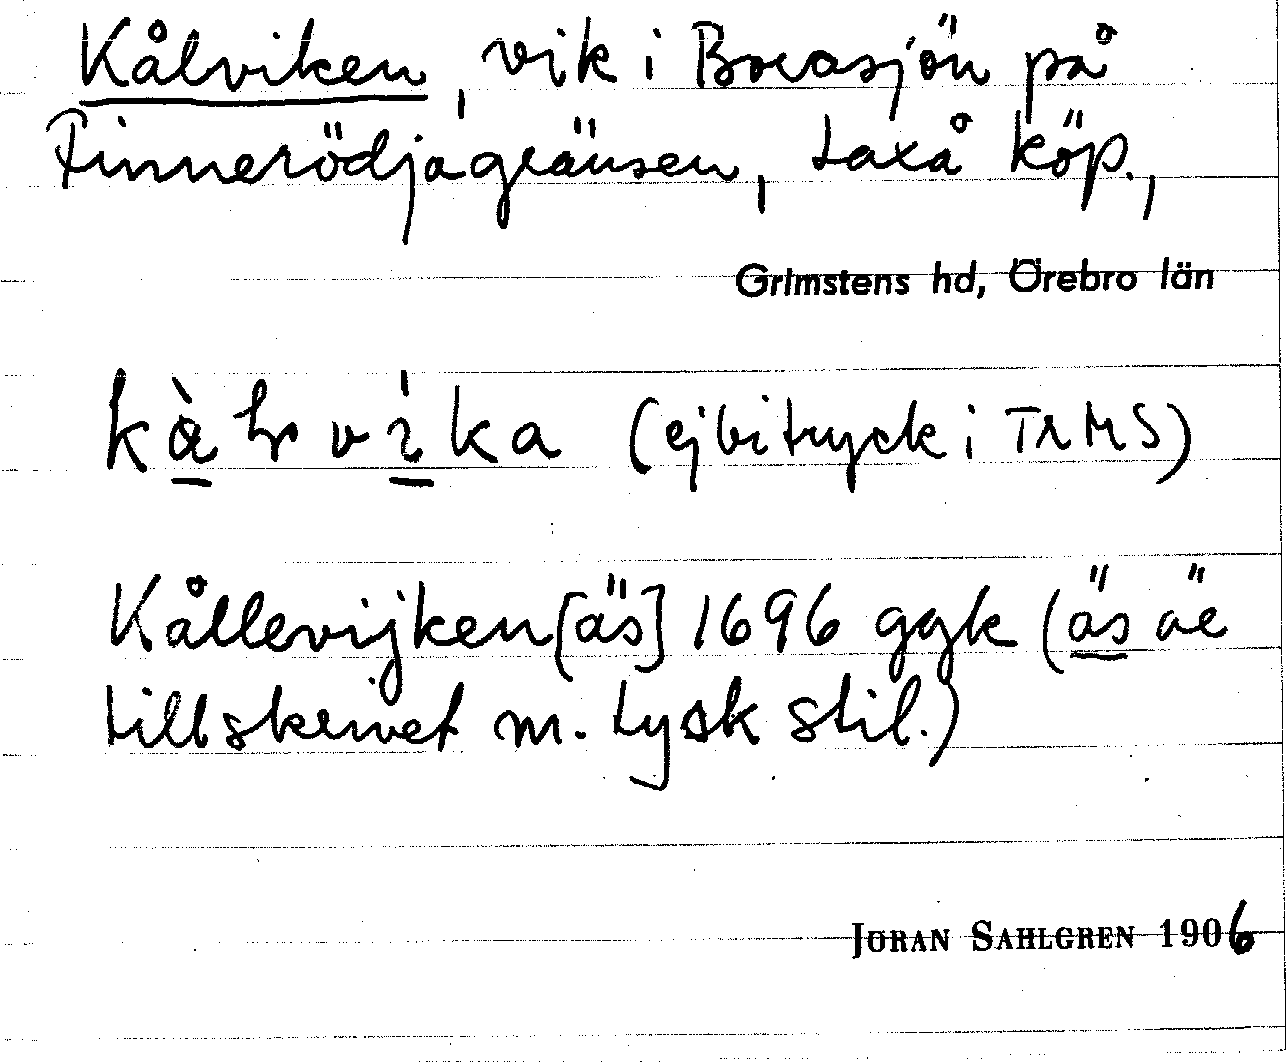 Kålviken, vik i Borasjön på
Finnerödjagränsen, Laxå köp.,
Grimstens hd, Örebro län
(ej bitryck i TRMS)
Kållevijken[äs] 1696 ggk (äs äe
tillskrivet m. tysk stil.)
JÖRAN SAHLGREN 1906